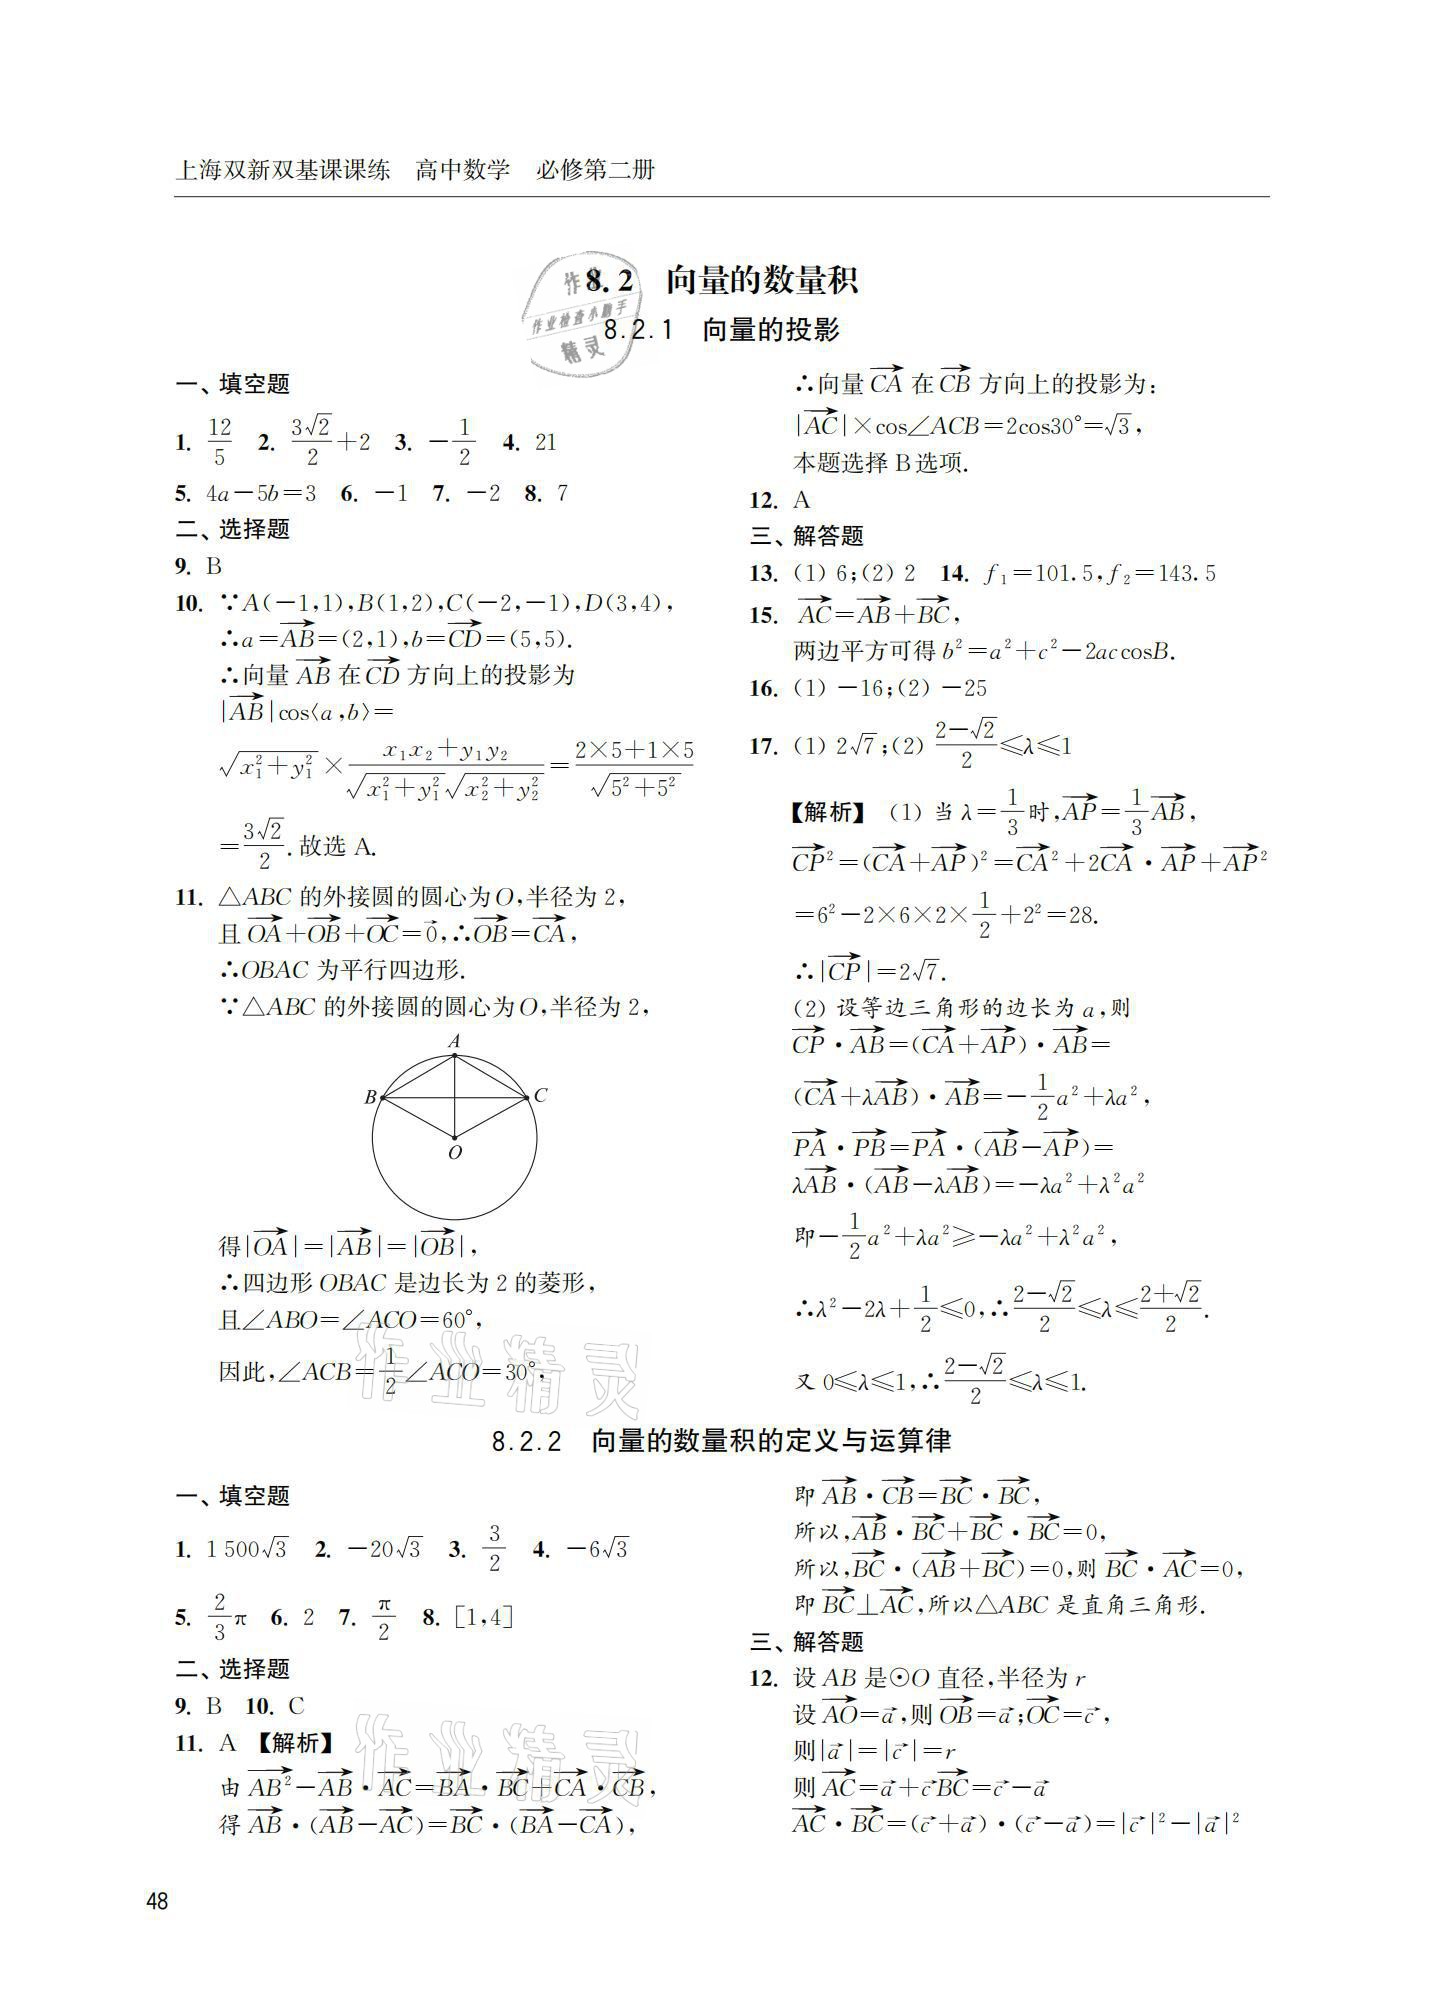 上海双新双基课课练　高中数学　必修第二册
8.2　向量的数量积
8.2.1　向量的投影
作业
作业检查小助手
精灵
一、填空题
1. 12/5　2. 3√2/2+2　3. −1/2　4. 21
5. 4a−5b=3　6. −1　7. −2　8. 7
二、选择题
9. B
10. ∵A(−1,1),B(1,2),C(−2,−1),D(3,4),
∴a=AB→=(2,1),b=CD→=(5,5).
∴向量 AB→ 在 CD→ 方向上的投影为
|AB→|cos⟨a,b⟩=
√(x₁²+y₁²)×(x₁x₂+y₁y₂)/(√(x₁²+y₁²)√(x₂²+y₂²))=(2×5+1×5)/√(5²+5²)
=3√2/2.故选 A.
11. △ABC 的外接圆的圆心为O,半径为 2,
且 OA→+OB→+OC→=0→,∴OB→=CA→,
∴OBAC 为平行四边形.
∵△ABC 的外接圆的圆心为O,半径为 2,
A
B
C
O
得|OA→|=|AB→|=|OB→|,
∴四边形 OBAC 是边长为 2 的菱形,
且∠ABO=∠ACO=60°,
因此,∠ACB=1/2∠ACO=30°,
作业精灵
∴向量 CA→ 在 CB→ 方向上的投影为:
|AC→|×cos∠ACB=2cos30°=√3,
本题选择 B选项.
12. A
三、解答题
13. (1) 6;(2) 2　14. f₁=101.5,f₂=143.5
15. AC→=AB→+BC→,
两边平方可得 b²=a²+c²−2accosB.
16. (1) −16;(2) −25
17. (1) 2√7;(2) (2−√2)/2≤λ≤1
【解析】 (1) 当 λ=1/3时,AP→=1/3AB→,
CP→²=(CA→+AP→)²=CA→²+2CA→·AP→+AP→²
=6²−2×6×2×1/2+2²=28.
∴|CP→|=2√7.
(2) 设等边三角形的边长为 a,则
CP→·AB→=(CA→+AP→)·AB→=
(CA→+λAB→)·AB→=−1/2a²+λa²,
PA→·PB→=PA→·(AB→−AP→)=
λAB→·(AB→−λAB→)=−λa²+λ²a²
即−1/2a²+λa²≥−λa²+λ²a²,
∴λ²−2λ+1/2≤0,∴(2−√2)/2≤λ≤(2+√2)/2.
又 0≤λ≤1,∴(2−√2)/2≤λ≤1.
8.2.2　向量的数量积的定义与运算律
一、填空题
1. 1 500√3　2. −20√3　3. 3/2　4. −6√3
5. 2/3π　6. 2　7. π/2　8. [1,4]
二、选择题
9. B　10. C
11. A 【解析】
由 AB²→−AB→·AC→=BA→·BC→+CA→·CB→,
得 AB→·(AB→−AC→)=BC→·(BA→−CA→),
作业精灵
即 AB→·CB→=BC→·BC→,
所以,AB→·BC→+BC→·BC→=0,
所以,BC→·(AB→+BC→)=0,则 BC→·AC→=0,
即 BC→⊥AC→,所以△ABC 是直角三角形.
三、解答题
12. 设 AB 是⊙O 直径,半径为 r
设 AO→=a→,则 OB→=a→;OC→=c→,
则|a→|=|c→|=r
则 AC→=a→+c→BC→=c→−a→
AC→·BC→=(c→+a→)·(c→−a→)=|c→|²−|a→|²
48